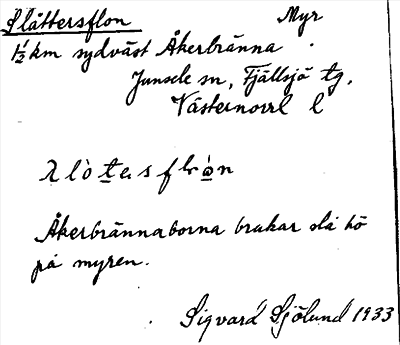 Slåttersflon Myr
1½ km sydväst Åkerbränna.
Junsele sn, Fjällsjö tg,
Västernorrl l
Åkerbrännaborna brukar slå hö
på myren.
Sigvard Sjölund 1933